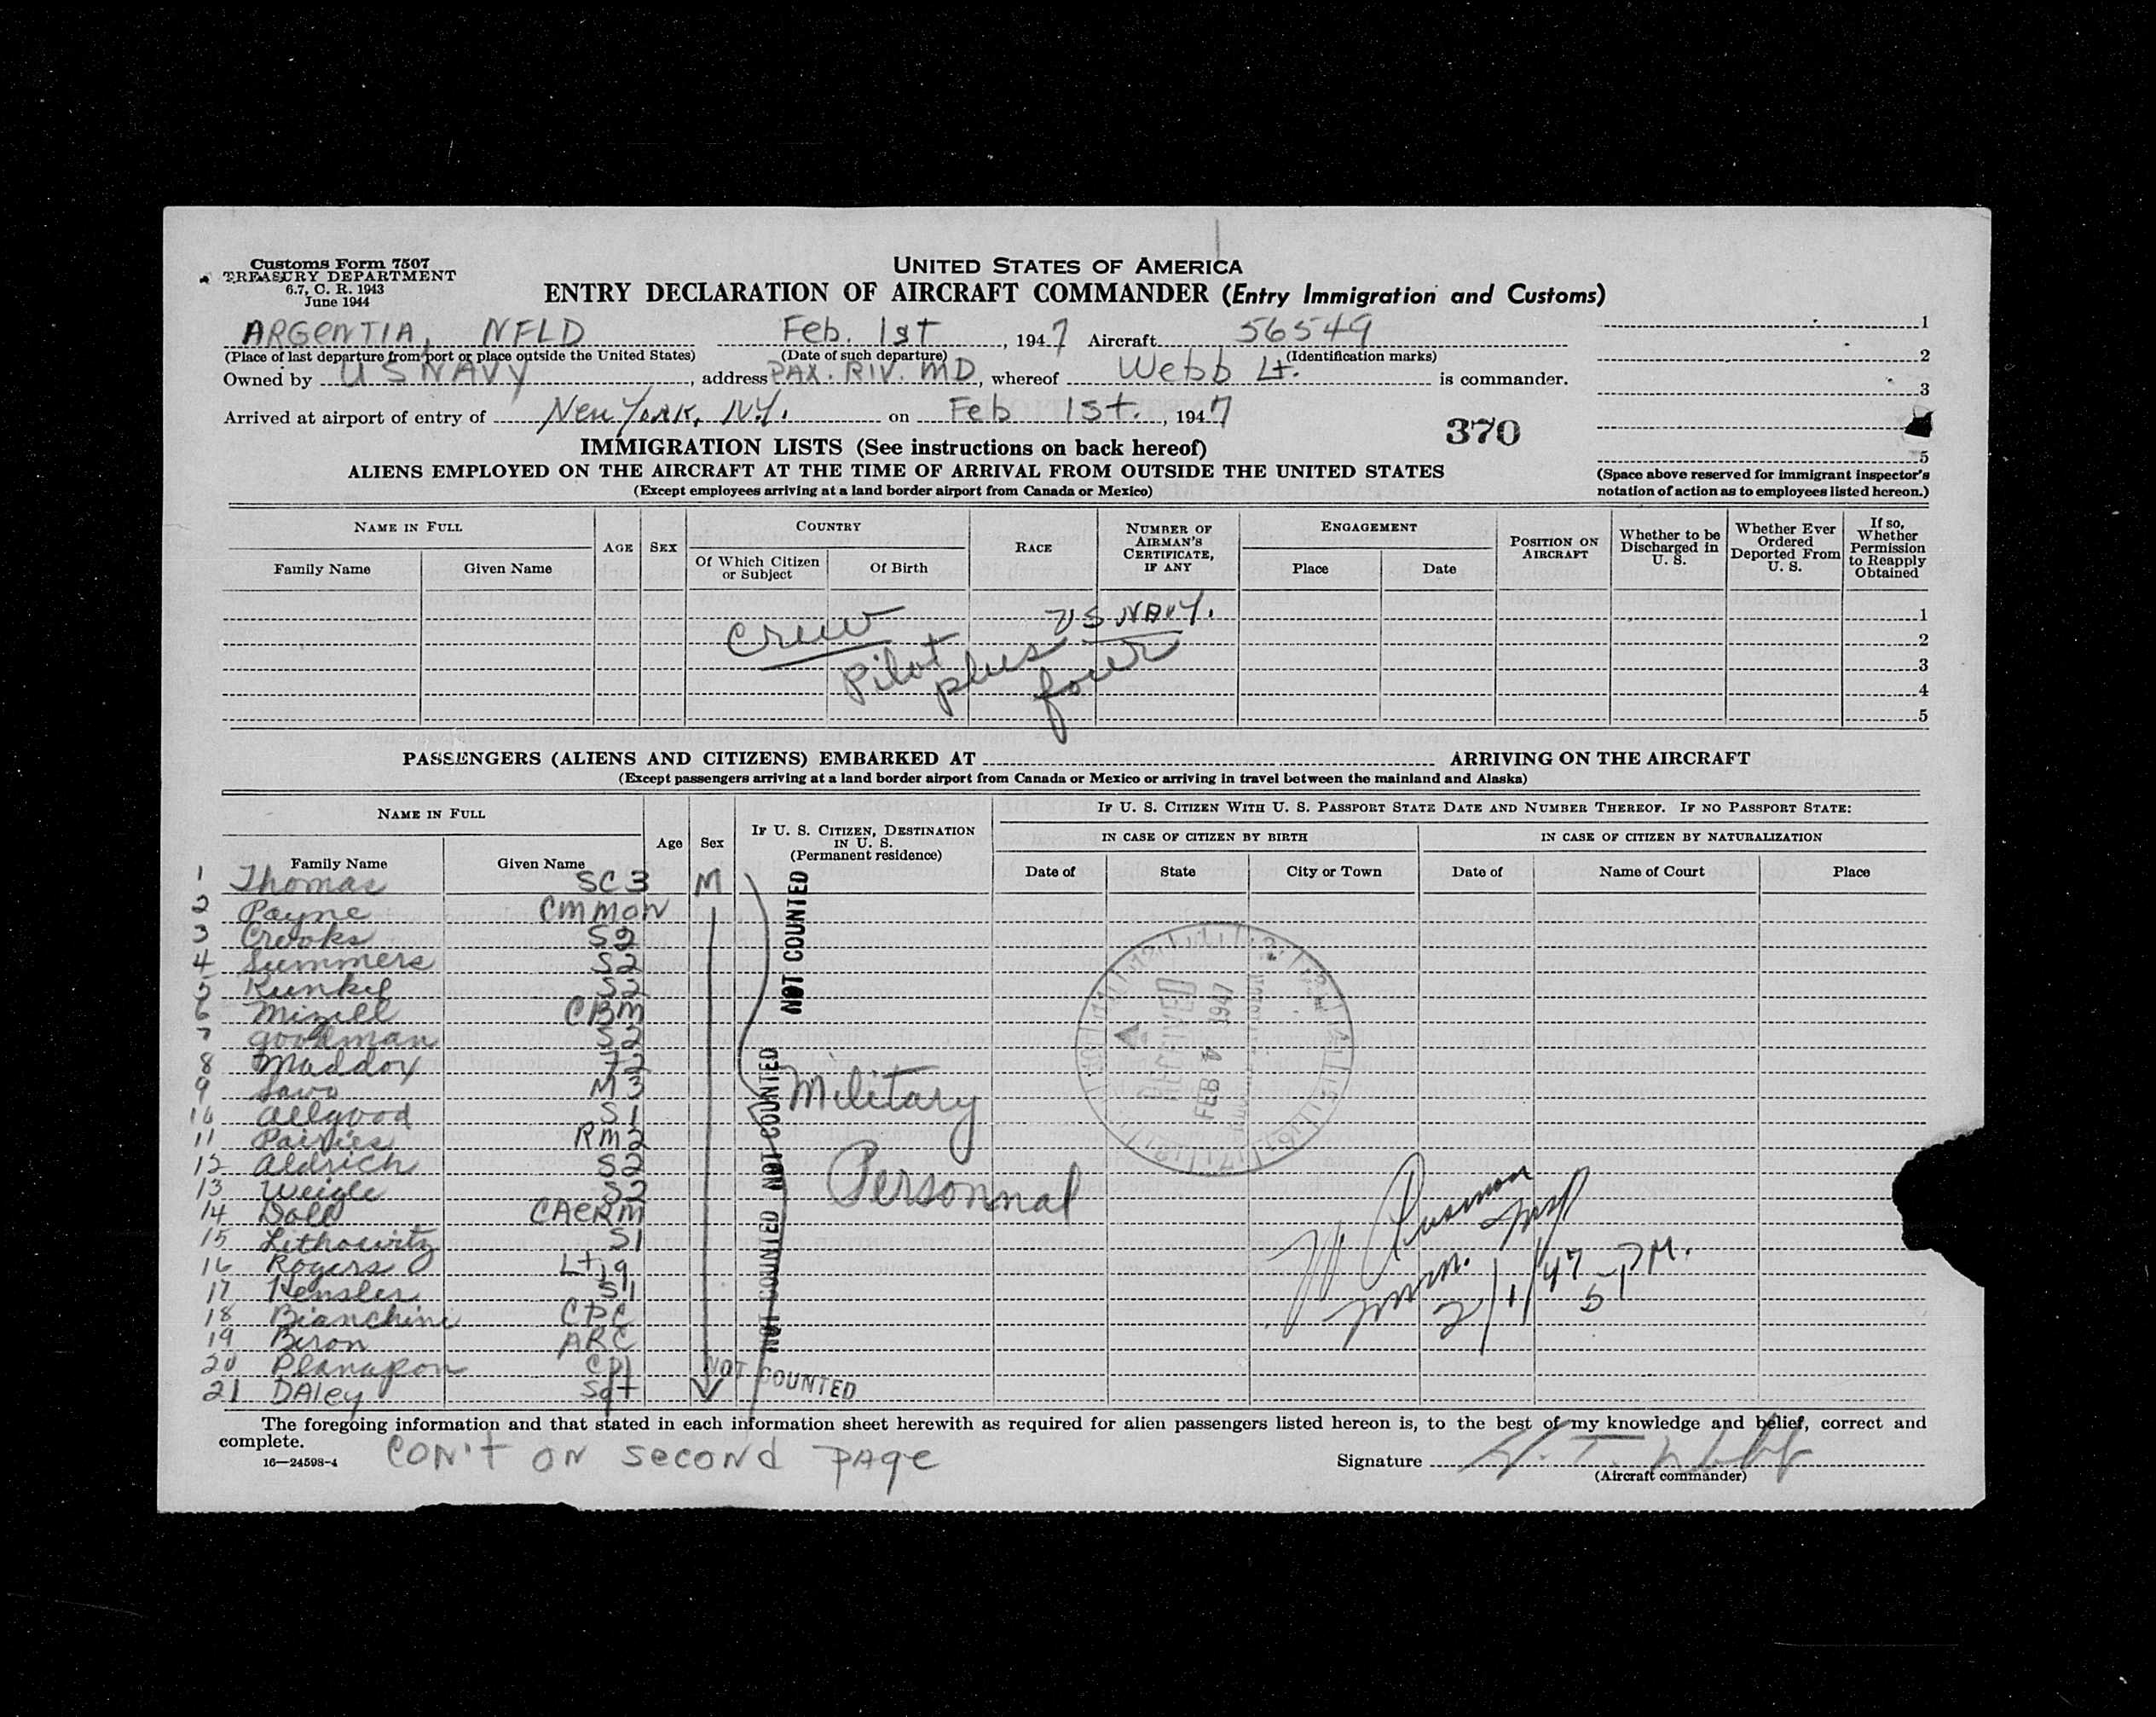 Customs Form 7507
TREASURY DEPARTMENT
6.7, C. R. 1943
June 1944
UNITED STATES OF AMERICA
ENTRY DECLARATION OF AIRCRAFT COMMANDER (Entry Immigration and Customs)
ARGENTIA, NFLD Feb. 1st, 1947 Aircraft 56549
(Place of last departure from port or place outside the United States) (Date of such departure) (Identification marks)
Owned by U S NAVY, address PAX. RIV. MD, whereof Webb Lt. is commander.
Arrived at airport of entry of New York, N.Y. on Feb 1st., 1947
1
2
3
5
370
(Space above reserved for immigrant inspector's
notation of action as to employees listed hereon.)
IMMIGRATION LISTS (See instructions on back hereof)
ALIENS EMPLOYED ON THE AIRCRAFT AT THE TIME OF ARRIVAL FROM OUTSIDE THE UNITED STATES
(Except employees arriving at a land border airport from Canada or Mexico)
NAME IN FULL
Family Name Given Name
AGE SEX
COUNTRY
Of Which Citizen or Subject Of Birth
RACE
NUMBER OF AIRMAN'S CERTIFICATE, IF ANY
ENGAGEMENT
Place Date
POSITION ON AIRCRAFT
Whether to be Discharged in U. S.
Whether Ever Ordered Deported From U. S.
If so, Whether Permission to Reapply Obtained
1
2
3
4
5
Crew US NAVY.
Pilot plus four
PASSENGERS (ALIENS AND CITIZENS) EMBARKED AT ARRIVING ON THE AIRCRAFT
(Except passengers arriving at a land border airport from Canada or Mexico or arriving in travel between the mainland and Alaska)
NAME IN FULL
Family Name Given Name
Age Sex
IF U. S. CITIZEN, DESTINATION IN U. S. (Permanent residence)
IF U. S. CITIZEN WITH U. S. PASSPORT STATE DATE AND NUMBER THEREOF. IF NO PASSPORT STATE:
IN CASE OF CITIZEN BY BIRTH IN CASE OF CITIZEN BY NATURALIZATION
Date of State City or Town Date of Name of Court Place
1 Thomas SC3 M
2 Payne CMMOW
3 Crooks S2
4 Summers S2
5 Kunkel S2
6 Mizell CBM
7 goodman S2
8 Maddox
9 M3
10 allgood S1
11 RM2
12 aldrich S2
13 Weigle S2
14 Doll CAERM
15 Lithowitz S1
16 Rogers Lt jg
17 Hensler S1
18 Bianchini CPC
19 Biron ARC
20 Cpl
21 DAley Sgt
NOT COUNTED
NOT COUNTED
NOT COUNTED
NOT COUNTED
Military
Personnal
RECEIVED
FEB 1947
Imm.
2/1/47 5 PM.
The foregoing information and that stated in each information sheet herewith as required for alien passengers listed hereon is, to the best of my knowledge and belief, correct and
complete.
16—24598-4
CON'T ON Second PAge
Signature
(Aircraft commander)